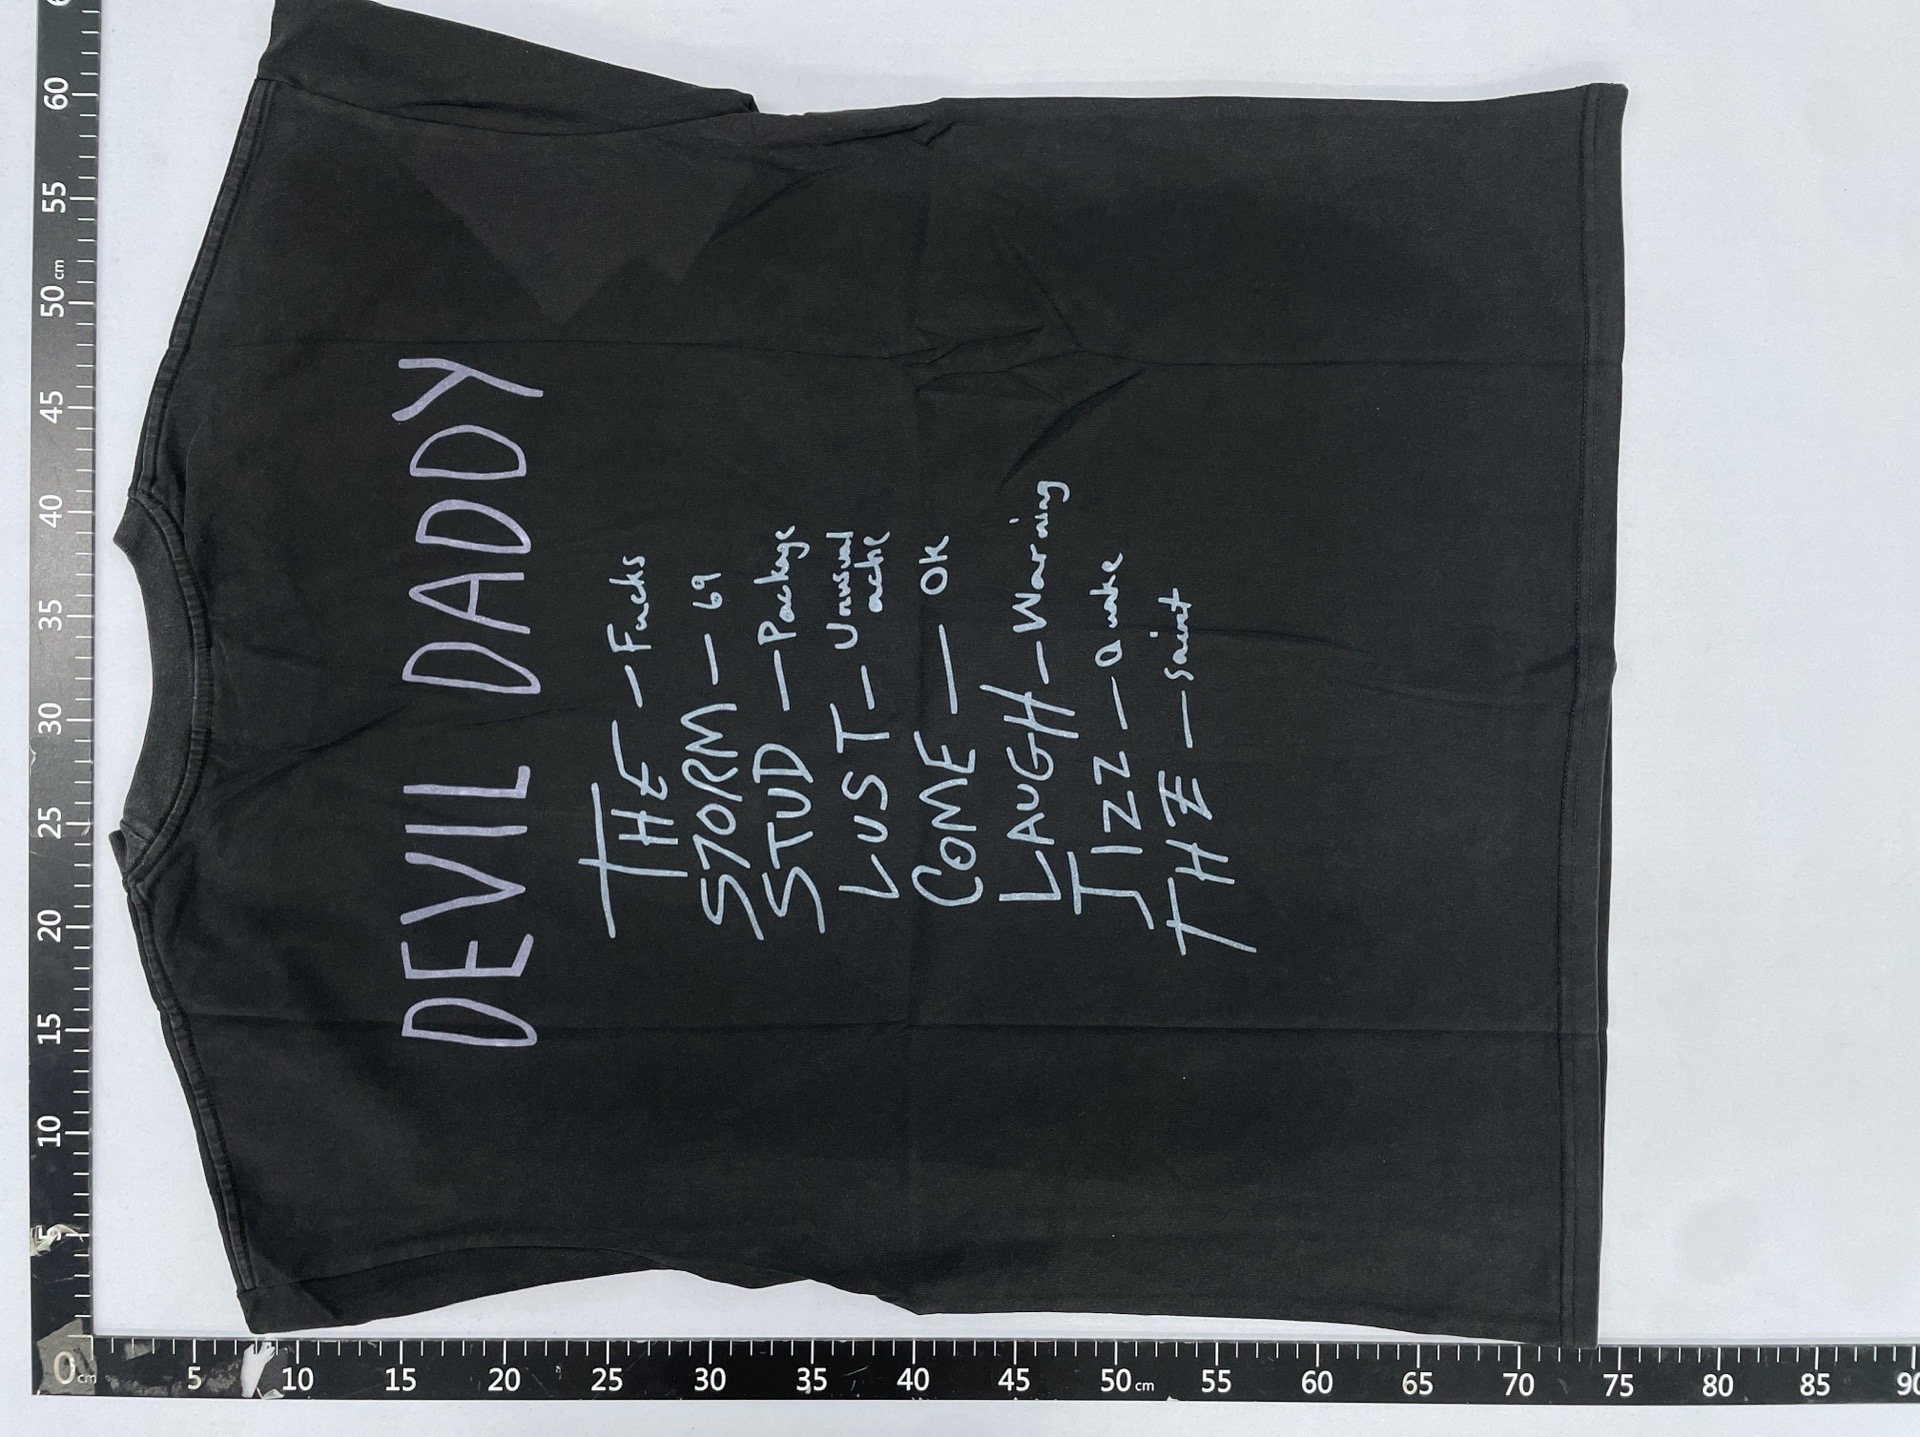 DEVIL DADDY
THE - Fucks
STORM - 69
STUD - Package
LUST - Unusual
ache
COME - OK
LAUGH - Warning
JIZZ - Quake
THE - saint
60
55
50 cm
45
40
35
30
25
20
15
10
5
0 cm
5
10
15
20
25
30
35
40
45
50 cm
55
60
65
70
75
80
85
90